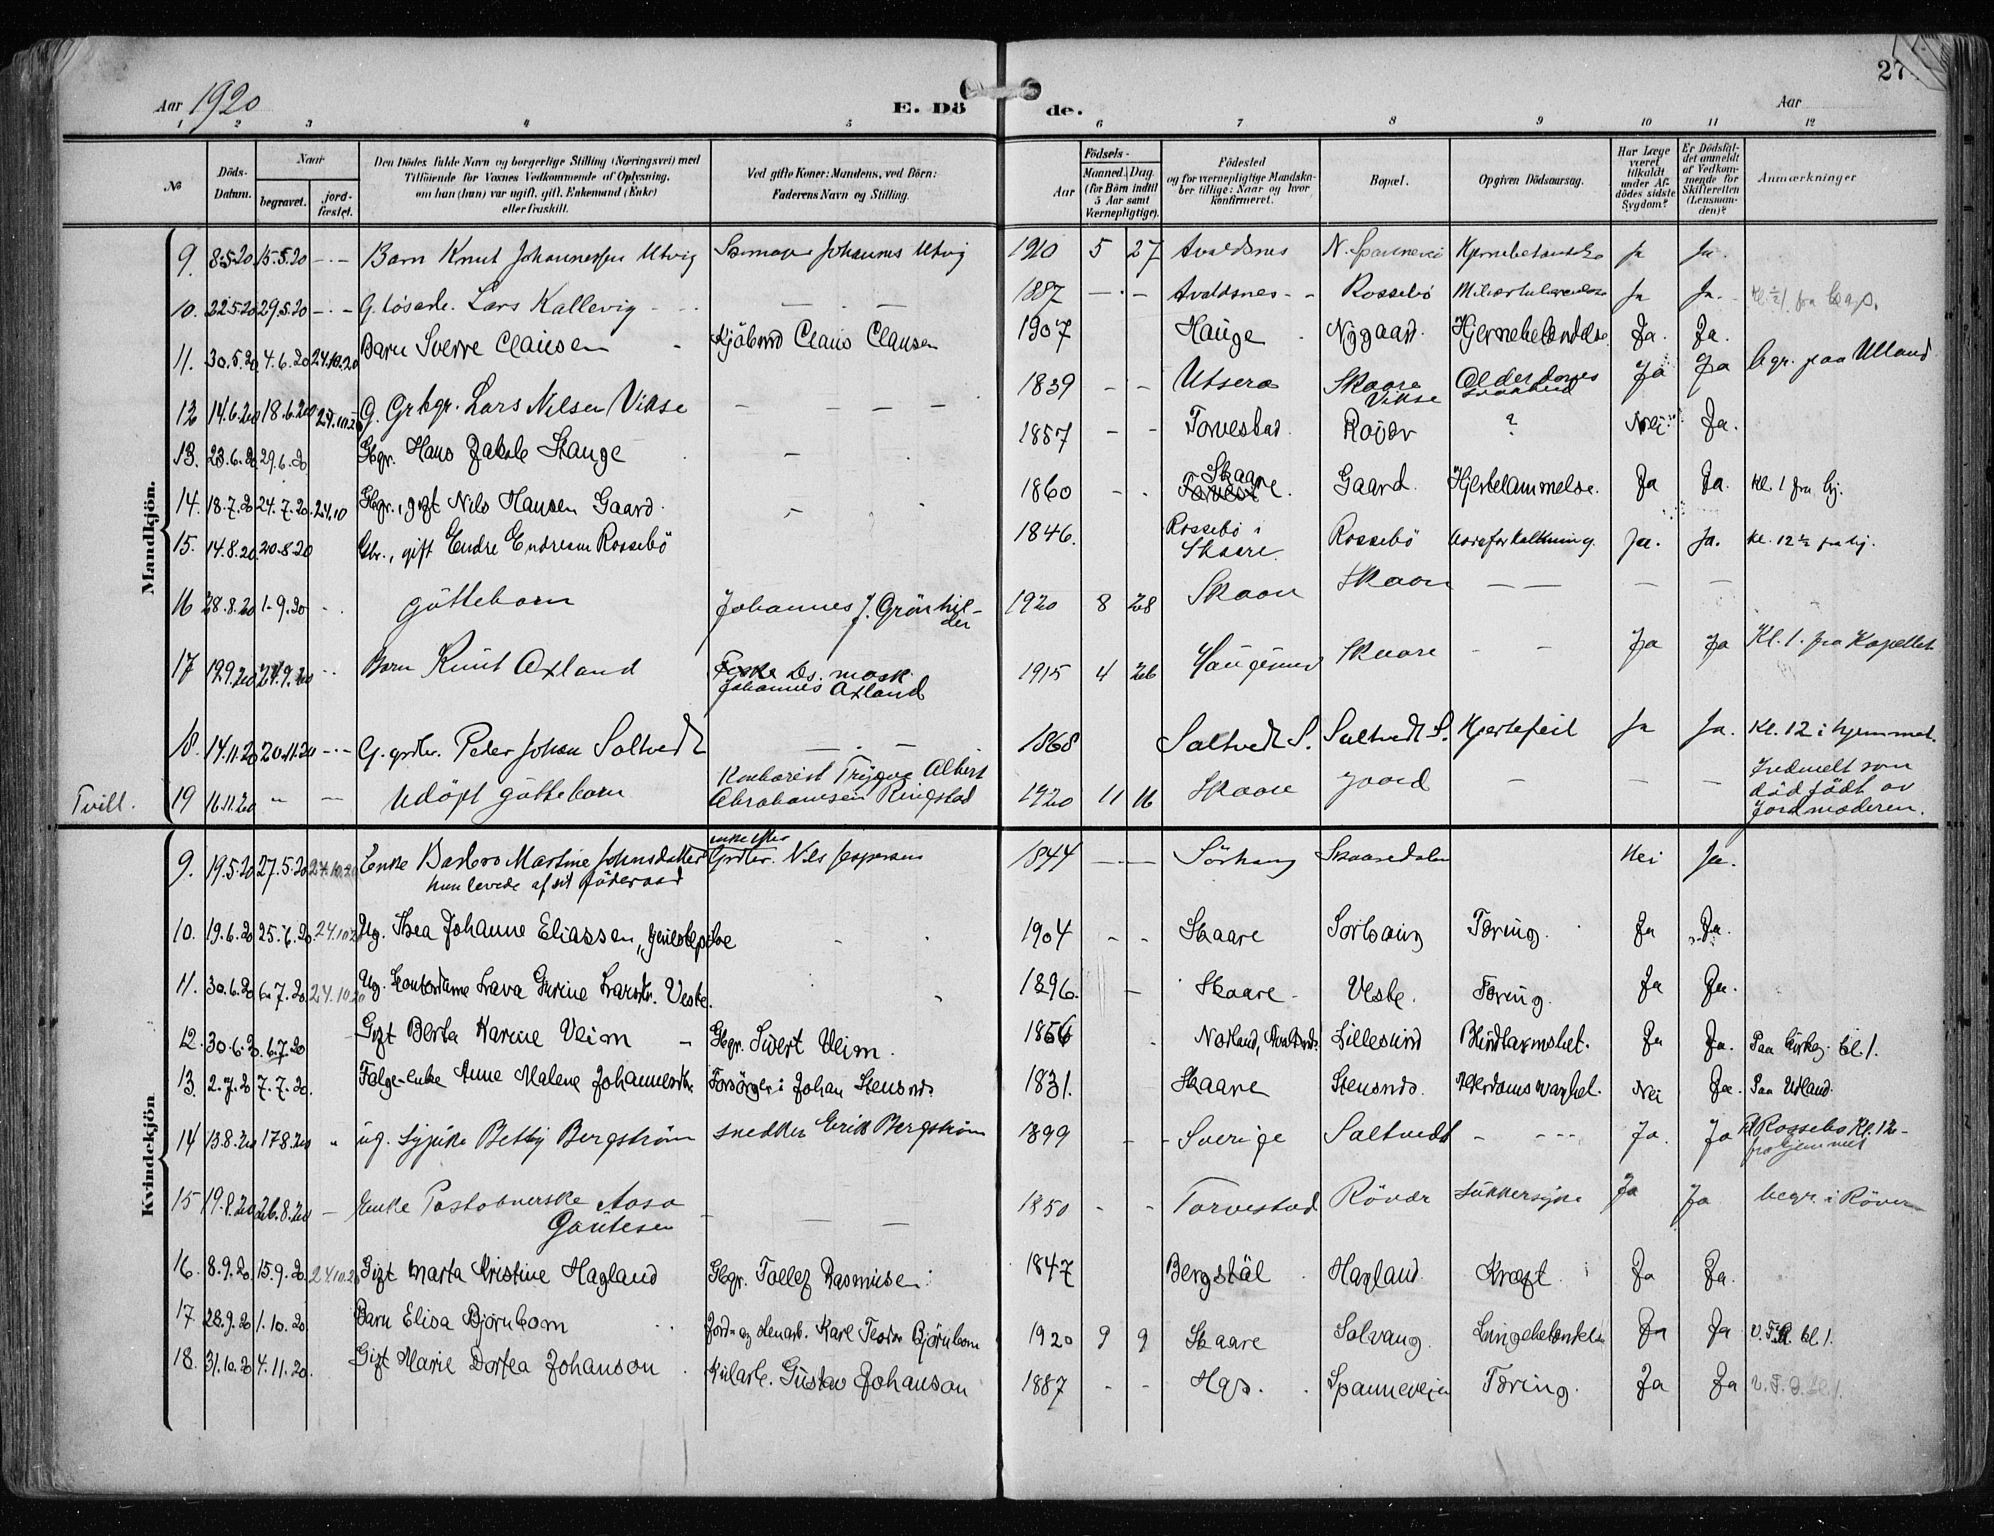 27
Aar 1920 E. Dö de. Aar
1 2 3 4 5 6 7 8 9 10 11 12
No
Döds-Datum.
Naar
begravet.
jord-fæstet.
Den Dödes fulde Navn og borgerlige Stilling (Næringsvei) med
Tilföiende for Voxnes Vedkommende af Oplysning,
om han (hun) var ugift, gift, Enkemand (Enke)
eller fraskilt.
Ved gifte Koner: Mandens, ved Börn:
Faderens Navn og Stilling.
Födsels-
Aar
Maaned. Dag.
(for Börn indtil
5 Aar samt
Værnepligtige).
Födested
og for værnepligtige Mandska-
ber tillige: Naar og hvor
konfirmeret.
Bopæl.
Opgiven Dödsaarsag.
Har Læge
været
tilkaldt
under Af-
dödes sidste
Sygdom?
Er Dödsfal-
det anmeldt
af Vedkom-
mende for
Skifteretten
(Lensman-
den)?
Anmærkninger
Mandkjön.
9. 8.5.20 15.5.20 Barn Knut Johannessen Utvig Johannes Utvig 1910 5 27 Avaldsnes Ja Ja.
10. 22.5.20 29.5.20 G. Lösarb. Lars Kallevig 1887 Avaldsnes Rossebö Ja Ja.
11. 30.5.20 4.6.20 24.10.20 Barn Sverre Clausen Kjöbmd Claus Clausen 1907 Hauge Nygaard. Hjernebetændelse. Ja. Ja.
12 14.6.20 18.6.20 24.10.20 G. Grbgr. Lars Nilsen Vikse 1839 Utsera Skaare Vikse Alderdoms svakhed Ja Ja begr. paa Utland
13. 23.6.20 29.6.20 Gbgr. Hans Jakob Hauge 1857 Torvestad Ja.
14. 18.7.20 24.7.20 24.10 Gbgr., gift Nils Hansen Gaard. 1860 Skaare. Gaard. Hjertelammelse. Ja Ja. Kl. 1 fra hj.
15. 14.8.20 20.8.20 Gbr., gift Endre Endresen Rossebö 1846. Rossebö i Skaare Rossebö Aareforkalkning. Ja. Ja. Kl. 12½ fra hj.
16 28.8.20 1.9.20 guttebarn Johannes J. Grönhil-
der 1920 8 28 Skaare Skaare
17 19.9.20 24.9.20 Barn Knut Axland
Johannes Axland 1915 4 26 Haugesund Skaare Ja Ja Kl. 1. fra Kapellet
18. 14.11.20 20.11.20 G. grdbr. Peder Johan Saltvedt 1868 Saltvedt S. Saltvedt S. Hjertefeil Ja Ja. Kl. 12 i hjemmet.
Tvill. 19 16.11.20 Udöpt guttebarn Kontorist Trygve Albert
Abrahamsen Ringstad 1920 11 16 Skaare Gaard Indmelt som
dödfödt av
Jordmoderen.
Kvindekjön
9. 19.5.20 27.5.20 24.10.20 Enke Barbro Martine Johnsdatter
hun levede af sit föderaad enke efter Grdbr. Nils Jespersen 1844 Sörhaug Skaaredalen Nei Ja.
10. 19.6.20 25.6.20 24.10.20 Ug. Thea Johanne Eliassen, 1904 Skaare Sörhaug Tæring. Ja Ja.
11. 30.6.20 6.7.20 24.10.20 Ug. Kontordame 1896. Skaare Veste. Tæring. Ja Ja.
12. 30.6.20 6.7.20 Gift Berta Karine Veim Gbgr. Sivert Veim. 1856 Lillesund Blindtarmsbet. Ja Ja. Paa Kirkeg. kl. 1.
13. 2.7.20 7.7.20. Følge-enke Anne Malene Johannesdtr. Forsörger: Johan Stensnds 1831. Skaare Stensnds. Nei Ja. Paa Utland.
14 13.8.20 17.8.20 ug. sypike Betty Bergström snedker Erik Bergström 1899 Sverige Saltvedt Ja. Ja Rossebö Kl. 12
fra hjemmet
15 19.8.20 26.8.20 Enke Postobnerske Aasa
Gautesen 1850 Torvestad Rövær Sukkersyke Ja Ja begr. i Rövær
16. 8.9.20. 15.9.20. 24.10.20 Gift Marta Kristine Hagland Gbgr. Tollef Rasmusen 1847 Hagland Kræft Ja Ja.
17. 28.9.20 1.10.20 Barn Elisa Björnbom Jord- og stenarb. Karl Teodor Björnbom 1920 9 9 Skaare Solvang. Lungebetændelse Ja Ja
18. 31.10.20 4.11.20. Gift Marie Dortea Johanson Gustav Johanson 1887 Hgs. Spanneveien Tæring. Ja Ja